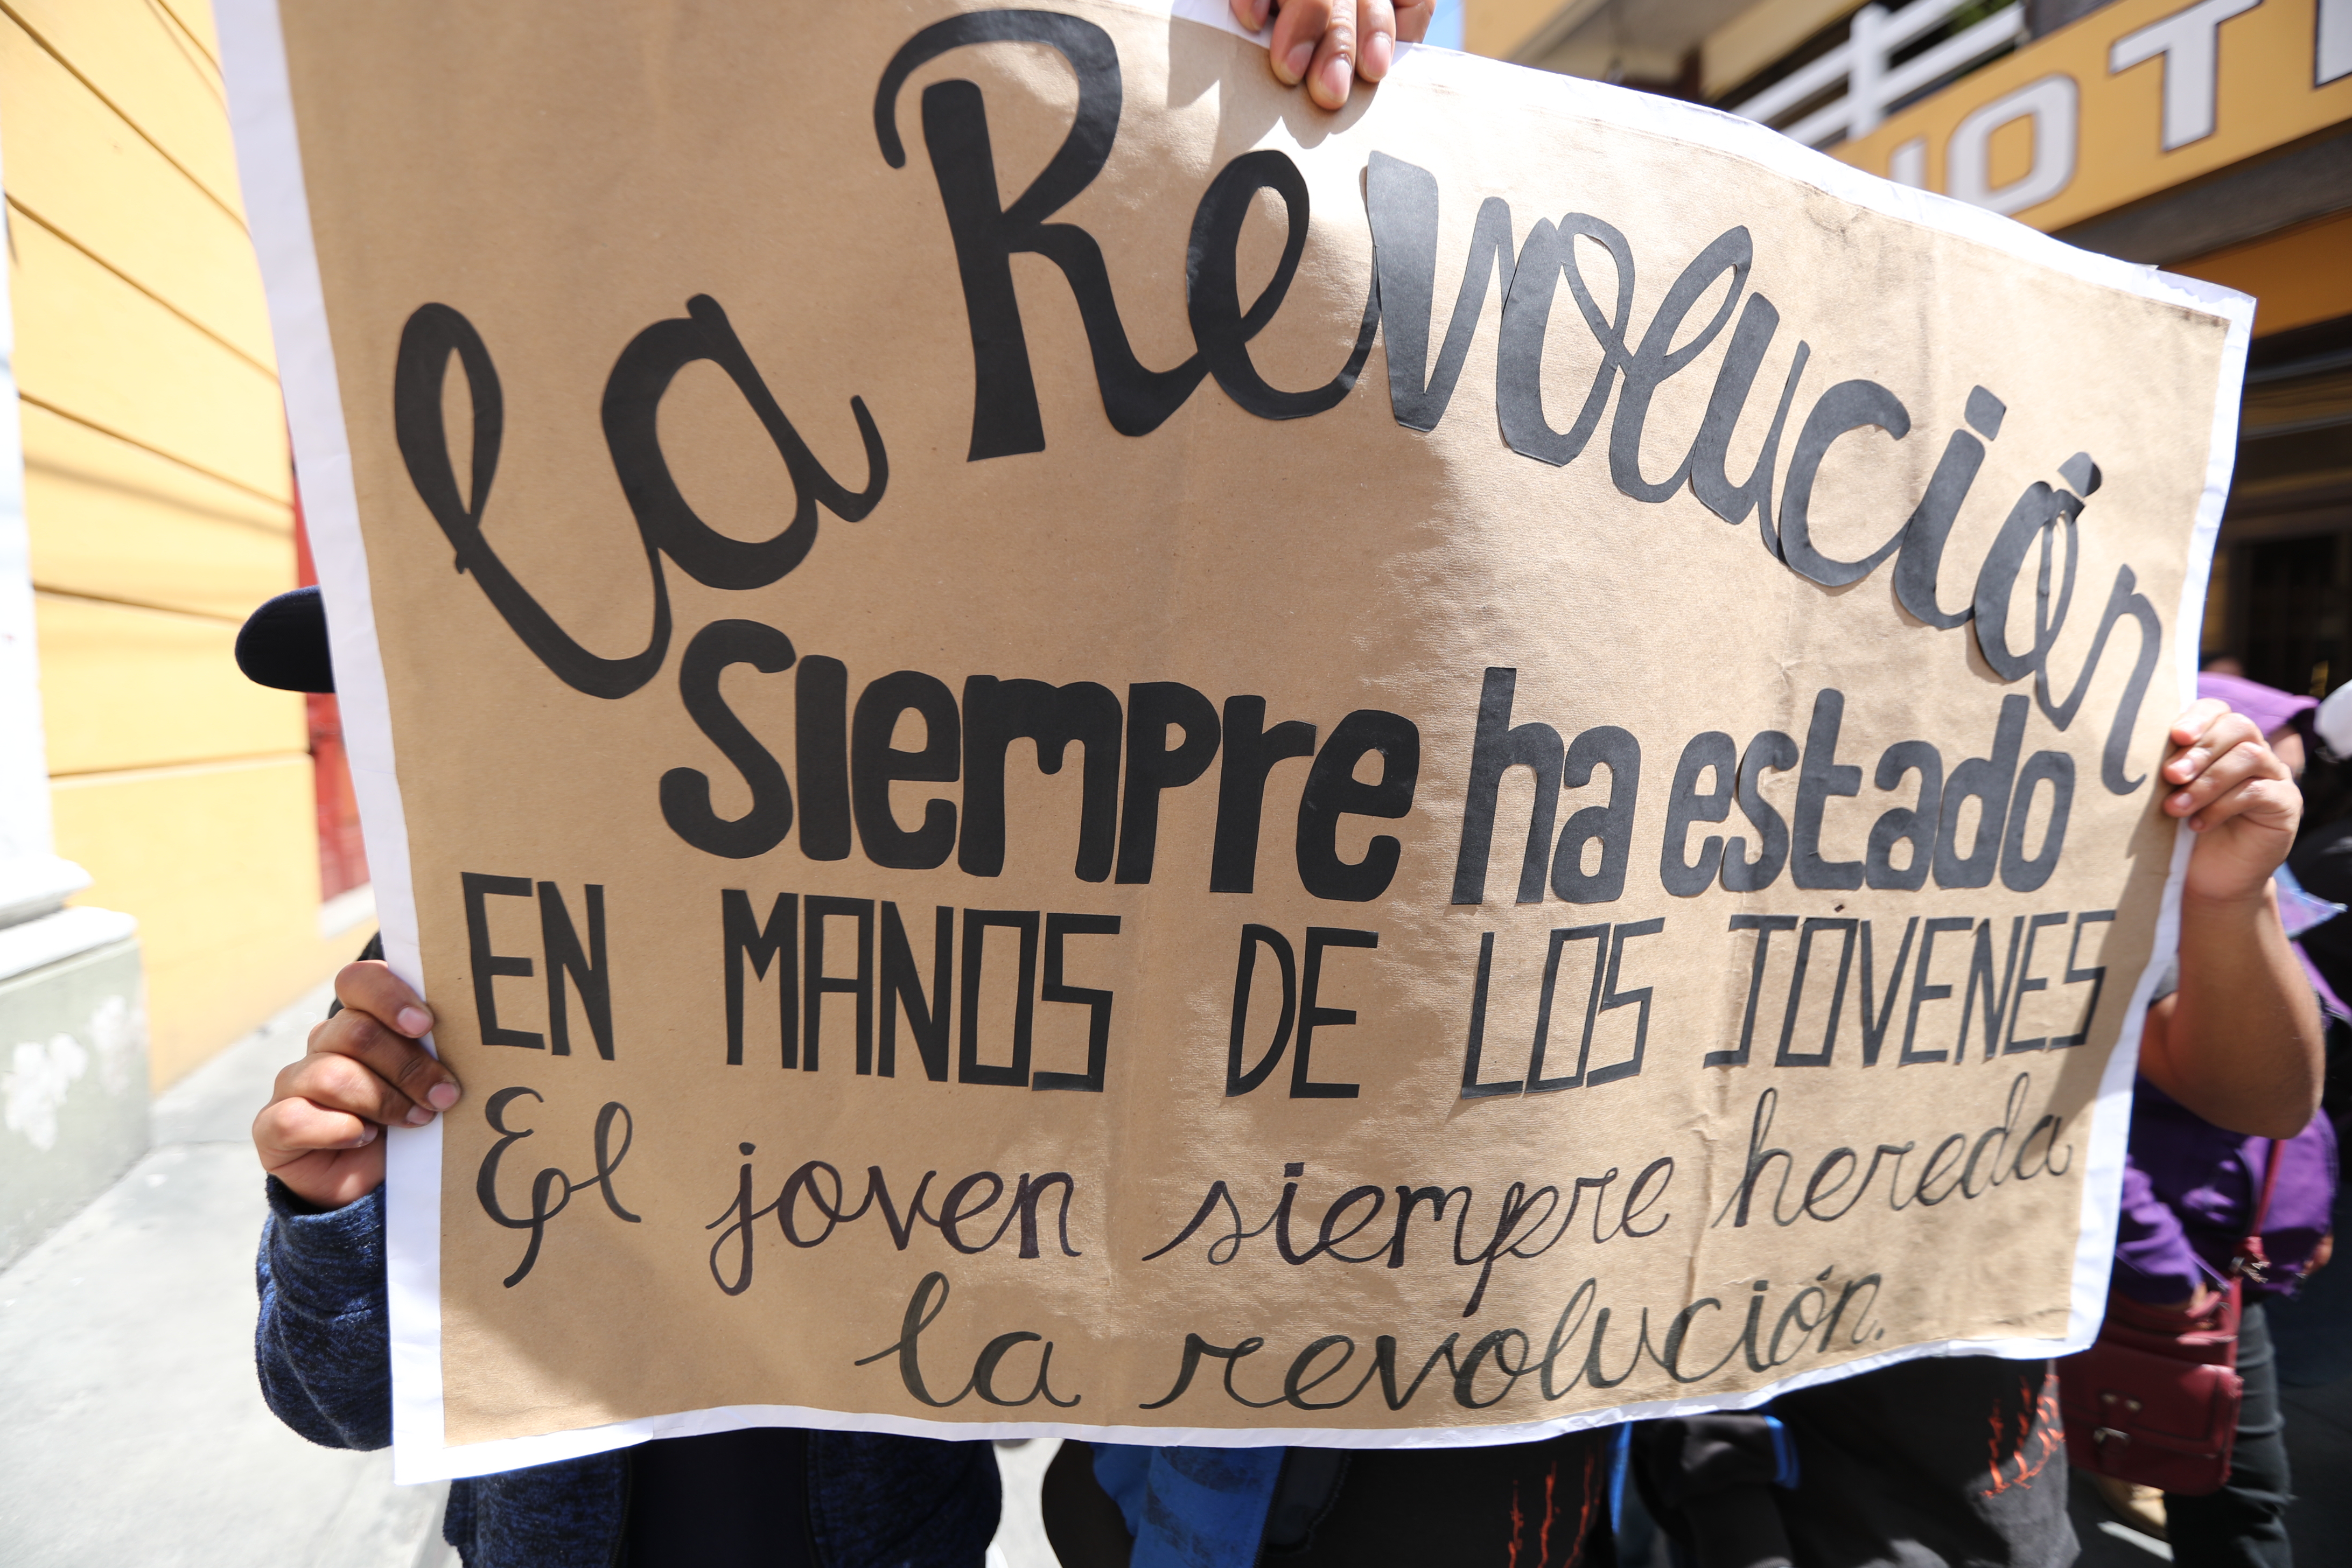 La Revolución
Siempre ha estado
EN MANOS DE LOS JÓVENES
El joven siempre hereda
la revolución.